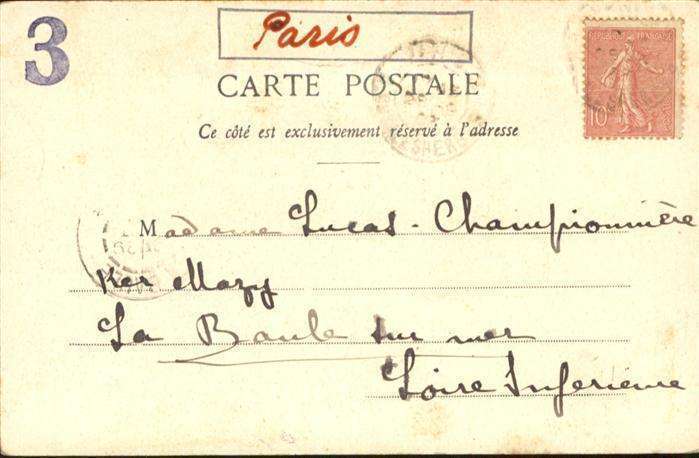 3
Paris
CARTE POSTALE
Ce côté est exclusivement réservé à l'adresse
REPUBLIQUE FRANÇAISE
10
Madame Lucas-Championnière
Ker Mazy
La Baule sur mer
Loire Inferieure